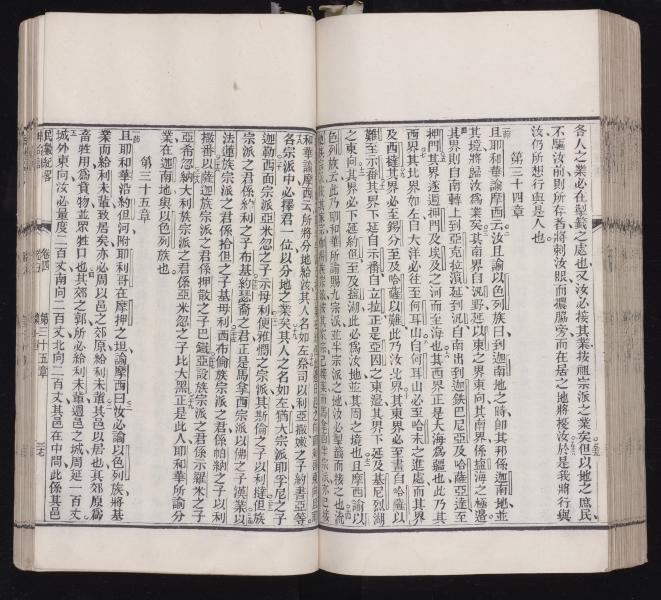 各人之業必在掣籤之處也又汝必按其業接祖宗派之業矣但以地之庶民
不驅汝前則所存者將刺汝眼而擾脇旁而在居之地將擾汝於是我將行與
汝仍所想行與是人也
第三十四章
且耶和華諭摩西云汝且諭以色列族曰到迦南地之時卽其邦係迦南地並
其境將歸汝爲業矣其南界自汎野延以東之界東向其南界係鹽海之極邊
其界則自南轉上到亞克拉濱延到汎自南出到迦鉄巴尼亞及哈薩亞達至
押門其界逐過押門及埃及之河而至海也其西界正是大海爲疆也此乃其
西界其北界如左自大洋必往至何耳山自何耳山必至哈末之進處而其界
及西撻其界必至錫分至及哈薩以難此乃汝北界其東界必至畫自哈薩以
難至示番其界下延自示番自立拉正是亞因之東邊其界下延及基尼烈湖
之東向其界必下延約但至及鹽湖此必爲汝地並其周之境也且摩西諭以
色列族云此乃耶和華所諭賜九宗派並半宗派之地汝必掣籤而接之也
和華諭摩西云所將分地給汝其人名如左祭司以利亞撒嫩之子約書亞等
各宗派中必擇君一位以分地之業矣其人之名如左猶大宗派耶孚尼之子
迦勒西面宗派亞米忽之子示母利便雅憫之宗派其斯倫之子以利撻但族
宗派之君係約利之子布基約瑟裔之君正是馬拿西宗派以弗之子漢業以
法蓮族宗派之君係拾但之子基母利西布倫族宗派之君係帕納之子以利
撒番以薩迦族宗派之君係押散之子巴鐵亞設族宗派之君係示羅米之子
亞希忽納大利族宗派之君係亞米忽之子比大黑正是此人耶和華所諭分
業在迦南地與以色列族也
第三十五章
且耶和華沿約但河附耶利哥在摩押之坦諭摩西曰汝必諭以色列族將基
業而給利未輩致居矣亦必周以邑之郊原給利未輩其邑以居也其郊原爲
畜牲用爲貨物並眾牲口也其郊之郭所必給利未輩遶邑之城周延一百丈
城外東向汝必量度二百丈南向二百丈北向二百丈其邑在中間此係其邑
民數紀畧
卷四
第三十五章